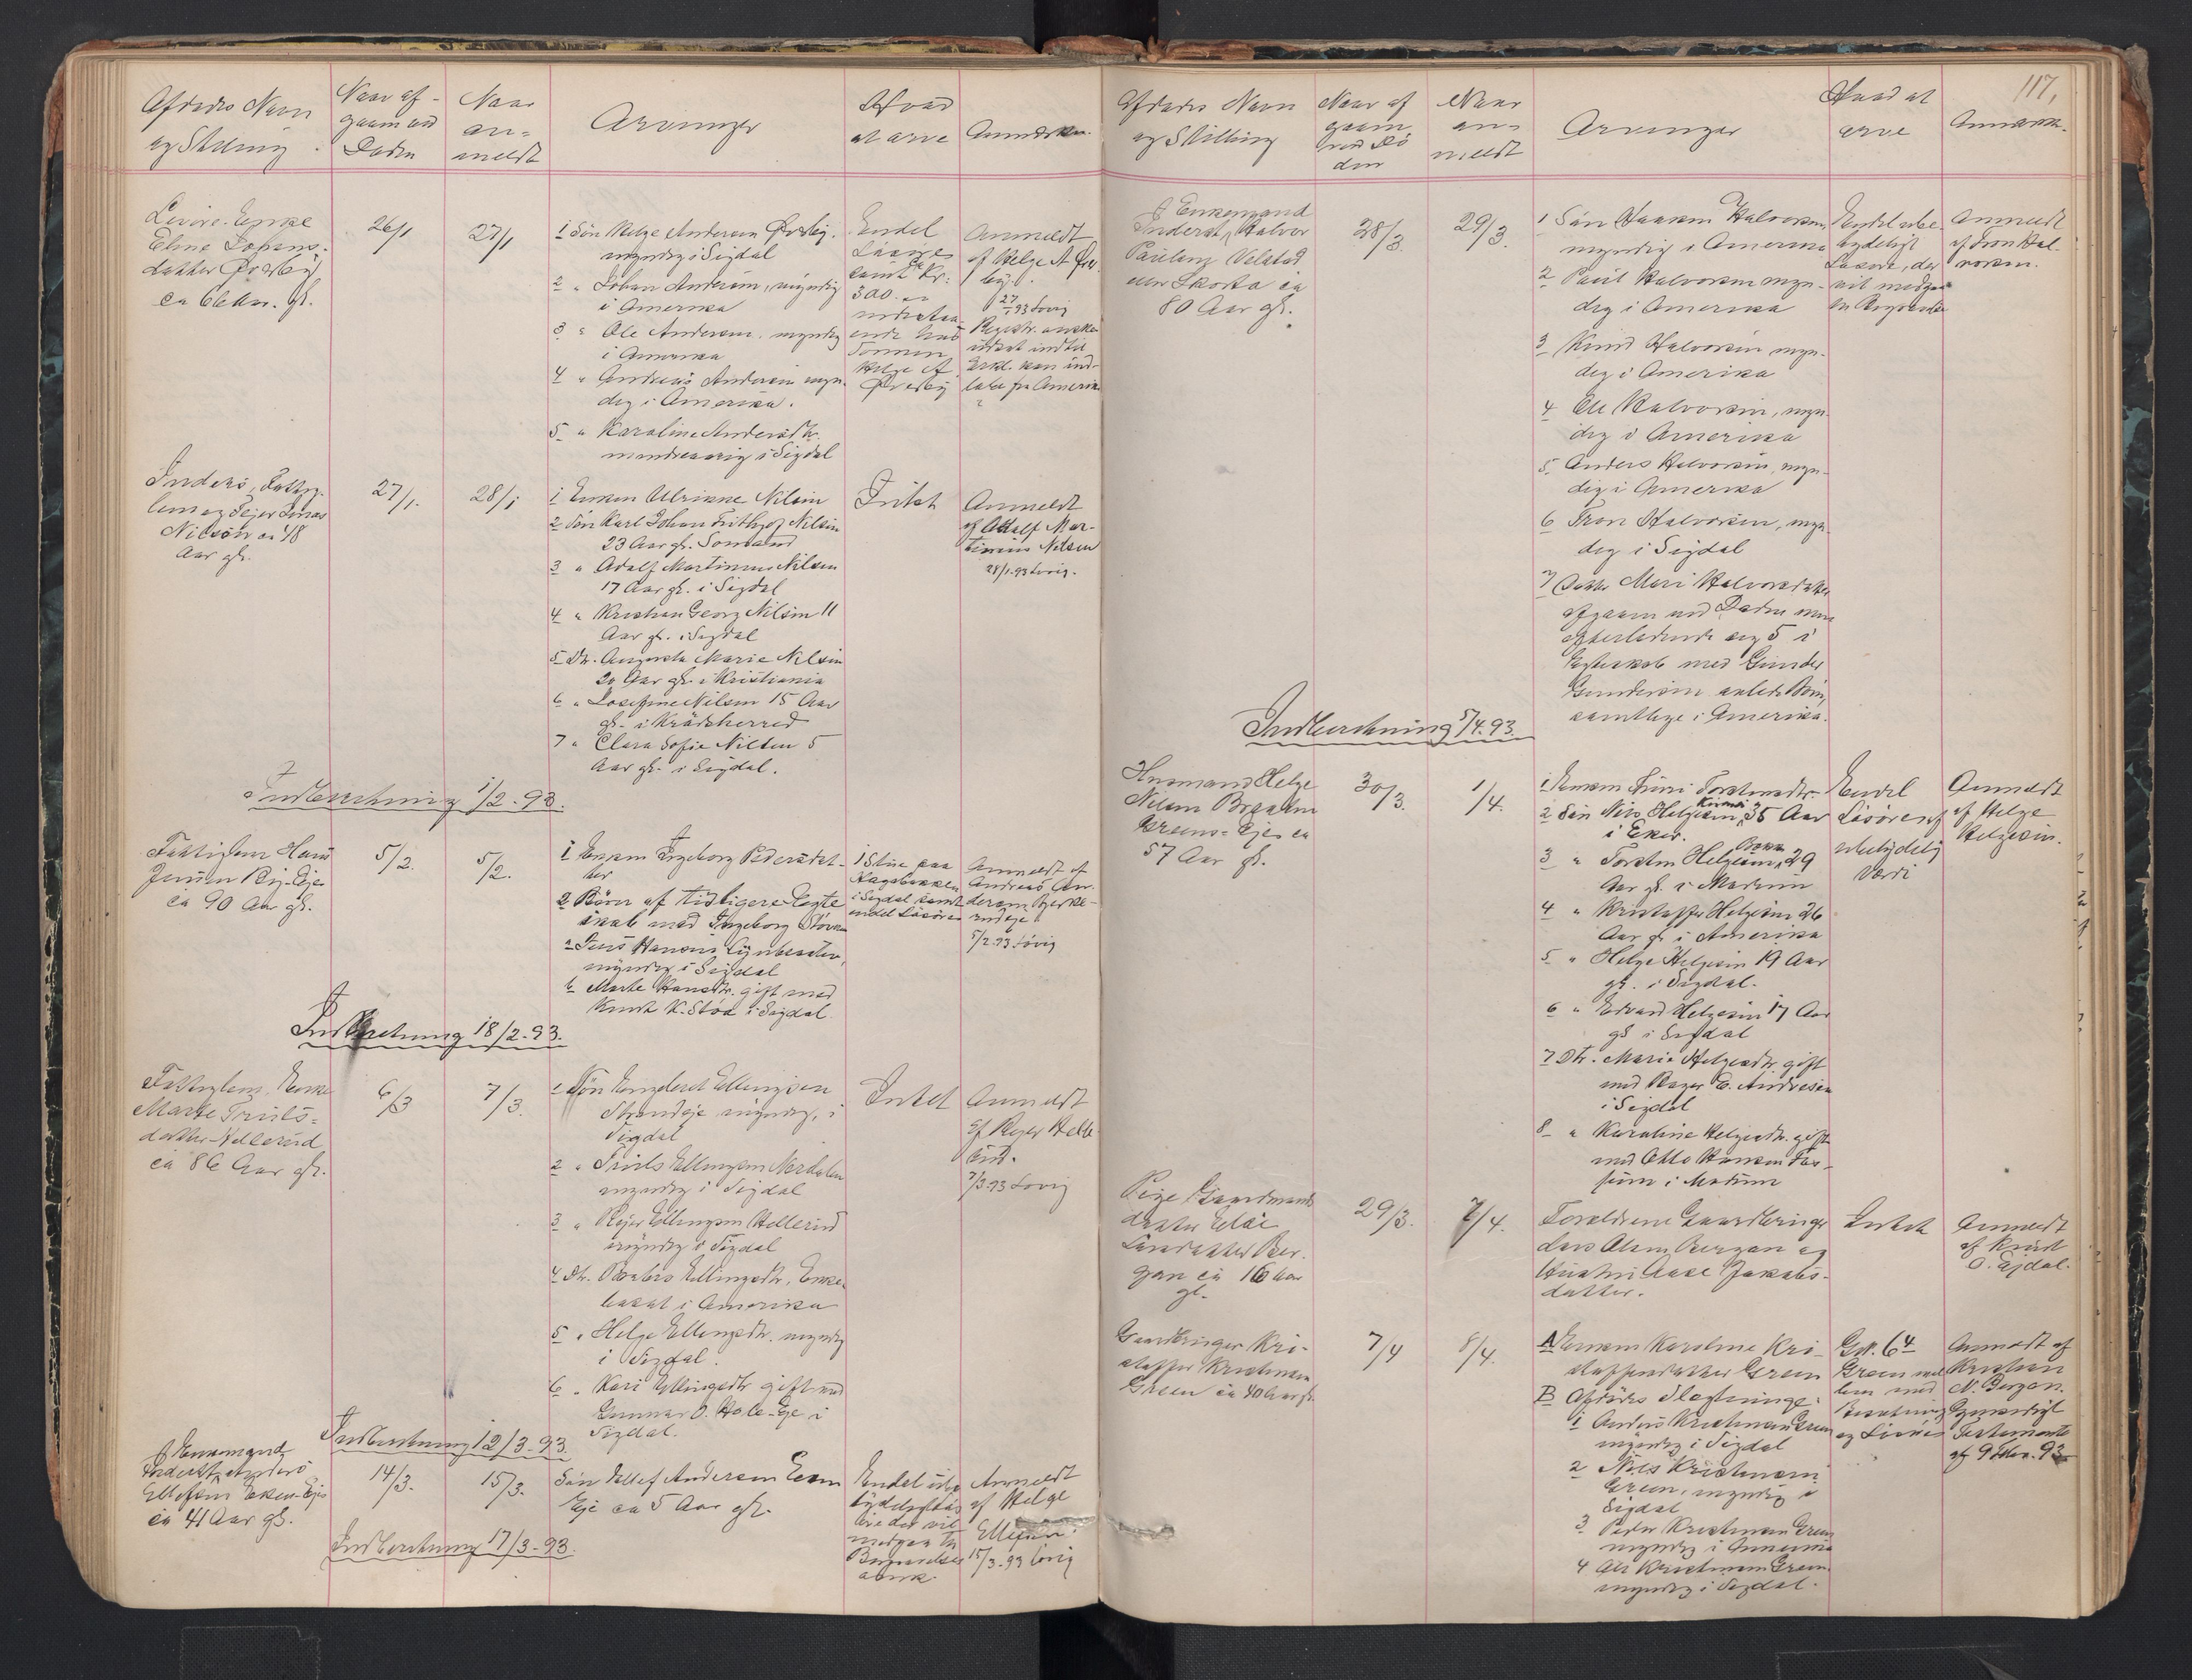 Afdødes Navn
og Stilling
Naar af-
gaaen ved
Døden
Naar
an-
meldt
Arvinger
Hvad
at arve
Anmærkn.
Enke
Eline
datter Øvreby
ca
26/1
27/1
1 Søn Helge Andersen Øvreby.
myndig i Sigdal
2 " Johan Andersen, myndig
i Amerika
3 " Ole Andersen, myndig
i Amerika
4 " Andreas Andersen myn-
dig i Amerika.
5 " Karoline Andersdtr.
mindreaarig i Sigdal
Endel
Løsøre
samt Kr:
300.
Sønnen
Helge A.
Øvreby
Anmeldt
af Helge A. Øvre-
by.
27/1 93 Lovig
Registr.
udsat indtil
Erkl. kan ind-
løbe fra Amerika
Inderst, Fattig-
lem og Jonas
Nilsen ca 48
Aar gl.
27/1.
28/1
1 Enken Ulrikke Nilsen
2 Søn Karl Johan Frithjof Nilsen
23 Aar gl. Sømand
3 " Adolf Martinius Nilsen
17 Aar gl. i Sigdal
4 " Kristian Georg Nilsen 11
Aar gl. i Sigdal
5 Dtr. Augusta Marie Nilsen
20 Aar gl. i Kristiania
6 " Josefine Nilsen 15 Aar
gl. i Krødsherred
7 " Clara Sofie Nilsen 5
Aar gl. i Sigdal.
Intet
Anmeldt
af Adolf Mar-
tinius Nilsen
28/1-93 Lovig.
Indberetning 1/2-93.
Fattiglem Hans
Jensen Eje
ca 90 Aar gl.
5/2.
5/2.
1 Enken Ingeborg Pedersdat-
ter
2 Børn af tidligere Egte-
skab med Ingeborg
a Jens Hansen
myndig i Sigdal
b Marte Hansdtr. gift med
Knut K. Støa i Sigdal.
1 Stue paa
Hagabakken
i Sigdal samt
endel Løsøre
Anmeldt af
Andreas An-
dersen
5/2.93 Lovig
Indberetning 18/2-93.
Fattiglem, Enke
Marte Truls-
datter Hellerud
ca 86 Aar gl.
6/3
7/3.
1 Søn Engebret Ellingsen
Strandeje myndig, i
Sigdal
2 " Truls Ellingsen Nordalen
myndig i Sigdal
3 " Reier Ellingsen Hellerud
myndig i Sigdal
4 Dtr. Barbro Ellingsdtr, Enke
bosat i Amerika
5 " Helge Ellingsdtr. myndig
i Sigdal.
6 " Kari Ellingsdtr gift med
Gunnar O. Hole-Eje i
Sigdal.
Intet
Anmeldt
af Reier Helle-
rud.
7/3.93 Lovig
Indberetning 12/3-93.
Enkemand
Inderst Anders
Ellefsen Eken-Eje
ca 41 Aar gl.
14/3.
15/3.
Søn Ellef Andersen Eken
Eje ca 5 Aar gl.
Endel ube-
tydeligt Løs-
øre der vil
medgaa til
Begravelses
omk.
Anmeldt
af Helge
Ellefsen
15/3-93 Lovig
Indberetning 17/3-93.
117.
Afdødes Navn
og Stilling
Naar af
gaaen
ved Dø
den
Naar
an-
meldt
Arvinger
Hvad at
arve
Anmærkn.
Enkemand
Inderst, Halvor
Paulsen Velstad
eller Skorta ca
80 Aar gl.
28/3
29/3.
1 Søn Haaken Halvorsen,
myndig i Amerika
2 " Paul Halvorsen myn-
dig i Amerika
3 Knud Halvorsen myn-
dig i Amerika
4 Ole Halvorsen, myn-
dig i Amerika
5 Anders Halvorsen, myn-
dig i Amerika
6 Tron Halvorsen, myn-
dig i Sigdal
7 Datter Mari Halvorsdatter
afgaaen ved Døden men
efterladende sig 5 i
Egteskab med Gunder
Gundersen avlede Børn,
samtlige i Amerika.
Endel ube-
tydeligt
Løsøre, der
vil medgaa
til Begravelse
Anmeldt
af Tron Hal-
vorsen.
Indberetning 5/4.93.
Husmand Helge
Nilsen Braaten
Greens-Eje ca
57 Aar gl.
30/3.
1/4.
1 Enken Guri Torstensdtr.
2 Søn Nils Helgesen, 35 Aar
i Eker.
3 " Torsten Helgesen 29
Aar gl. i Modum
4 " Kristoffer Helgesen 26
Aar gl i Amerika
5 " Helge Helgesen 19 Aar
gl. i Sigdal.
6 " Edvard Helgesen 17 Aar
gl i Sigdal
7 Dtr. Marie Helgesdtr. gift
med E. Andresen
i Sigdal
8 " Karoline Helgesdtr. gift
med Otto Hansen Fos-
sum i Modum
Endel
Løsøre af
ubetydelig
Værdi
Anmeldt
af Helge
Helgesen.
Pige Gaardmands
datter
Larsdatter Ber-
gan ca 16 Aar
gl.
29/3.
7/4.
Forældrene Gaardbruger
Lars Olsen Bergan og
Hustru Aase Jakobs-
datter.
Intet
Anmeldt
af Knud
O. Ejdal.
Gaardbruger Kri-
stoffer Kristensen
Green ca 40 Aar gl.
7/4
8/4.
A Enken Karoline Kri-
stoffersdatter Green
B Afdødes Slægtninge:
1 Anders Kristensen Green
myndig i Sigdal
2 Nils Kristensen
Green, myndig i
Sigdal
3 Peder Kristensen Green
myndig i Amerika
4 Ole Kristensen Green
myndig i Sigdal.
G.N. 64
Green
med
Besætning
og Løsøre
Anmeldt af
Kristian
N. Bergan.
Gjensidigt
Testamente
af 9 Febr. 93